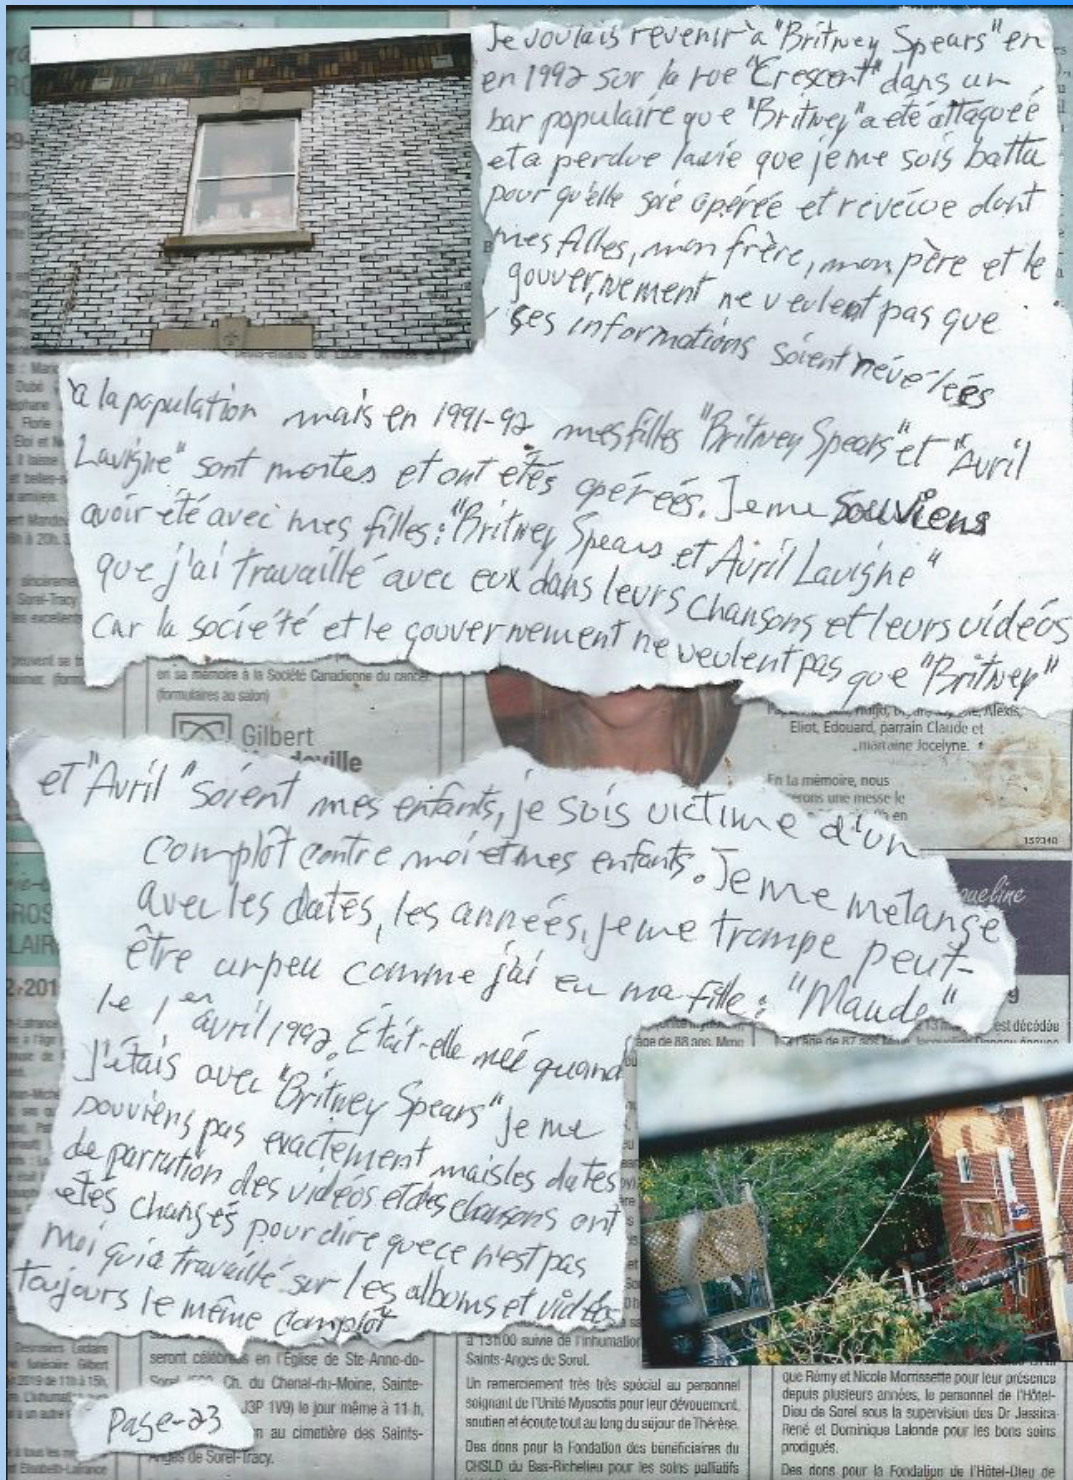 Je voulais revenir à "Britney Spears" en
en 1992 sur la rue "Crescent" dans un
bar populaire que "Britney" a été attaqueé
et a perdue la vie que je me suis battu
pour qu'elle soie opérée et revéçue dont
mes filles, mon frère, mon père et le
gouvernement ne veulent pas que
ses informations soient révélées
à la population mais en 1991-92 mes filles "Britney Spears" et "Avril
Lavigne" sont mortes et ont étés opéreés. Je me souviens
avoir été avec mes filles: "Britney Spears et Avril Lavigne"
que j'ai travaillé avec eux dans leurs chansons et leurs vidéos
car la société et le gouvernement ne veulent pas que "Britney"
en sa mémoire à la Société Canadienne du cancer
(formulaires au salon)
Gilbert
Eliot, Edouard, parrain Claude et
marraine Jocelyne.
En ta mémoire, nous
erons une messe le
159340
et "Avril" soient mes enfants, je suis victime d'un
complôt contre moi et mes enfants. Je me mélange
avec les dates, les années, je me trompe peut-
être un peu comme j'ai eu ma fille: "Maude"
le 1er avril 1992. Etait-elle née quand
j'étais avec "Britney Spears" je me
souviens pas exactement mais les dates
de parrution des vidéos et des chansons ont
étés changés pour dire que ce n'est pas
moi qui a travaillé sur les albums et vidéos
toujours le même complôt
Page-23
seront célébrés en l'Église de Ste-Anne-de-
Ch. du Chenal-du-Moine, Sainte-
J3P 1V9) le jour même à 11 h,
au cimetière des Saints-
Anges de Sorel-Tracy.
à 13h00 suivie de l'inhumation
Saints-Anges de Sorel.
Un remerciement très très spécial au personnel
soignant de l'Unité Myosotis pour leur dévouement,
soutien et écoute tout au long du séjour de Thérèse.
Des dons pour la Fondation des bénéficiaires du
CHSLD du Bas-Richelieu pour les soins palliatifs
que Rémy et Nicole Morrissette pour leur présence
depuis plusieurs années, le personnel de l'Hôtel-
Dieu de Sorel sous la supervision des Dr Jessica
René et Dominique Lalonde pour les bons soins
prodigués.
Des dons pour la Fondation de l'Hôtel-Dieu de